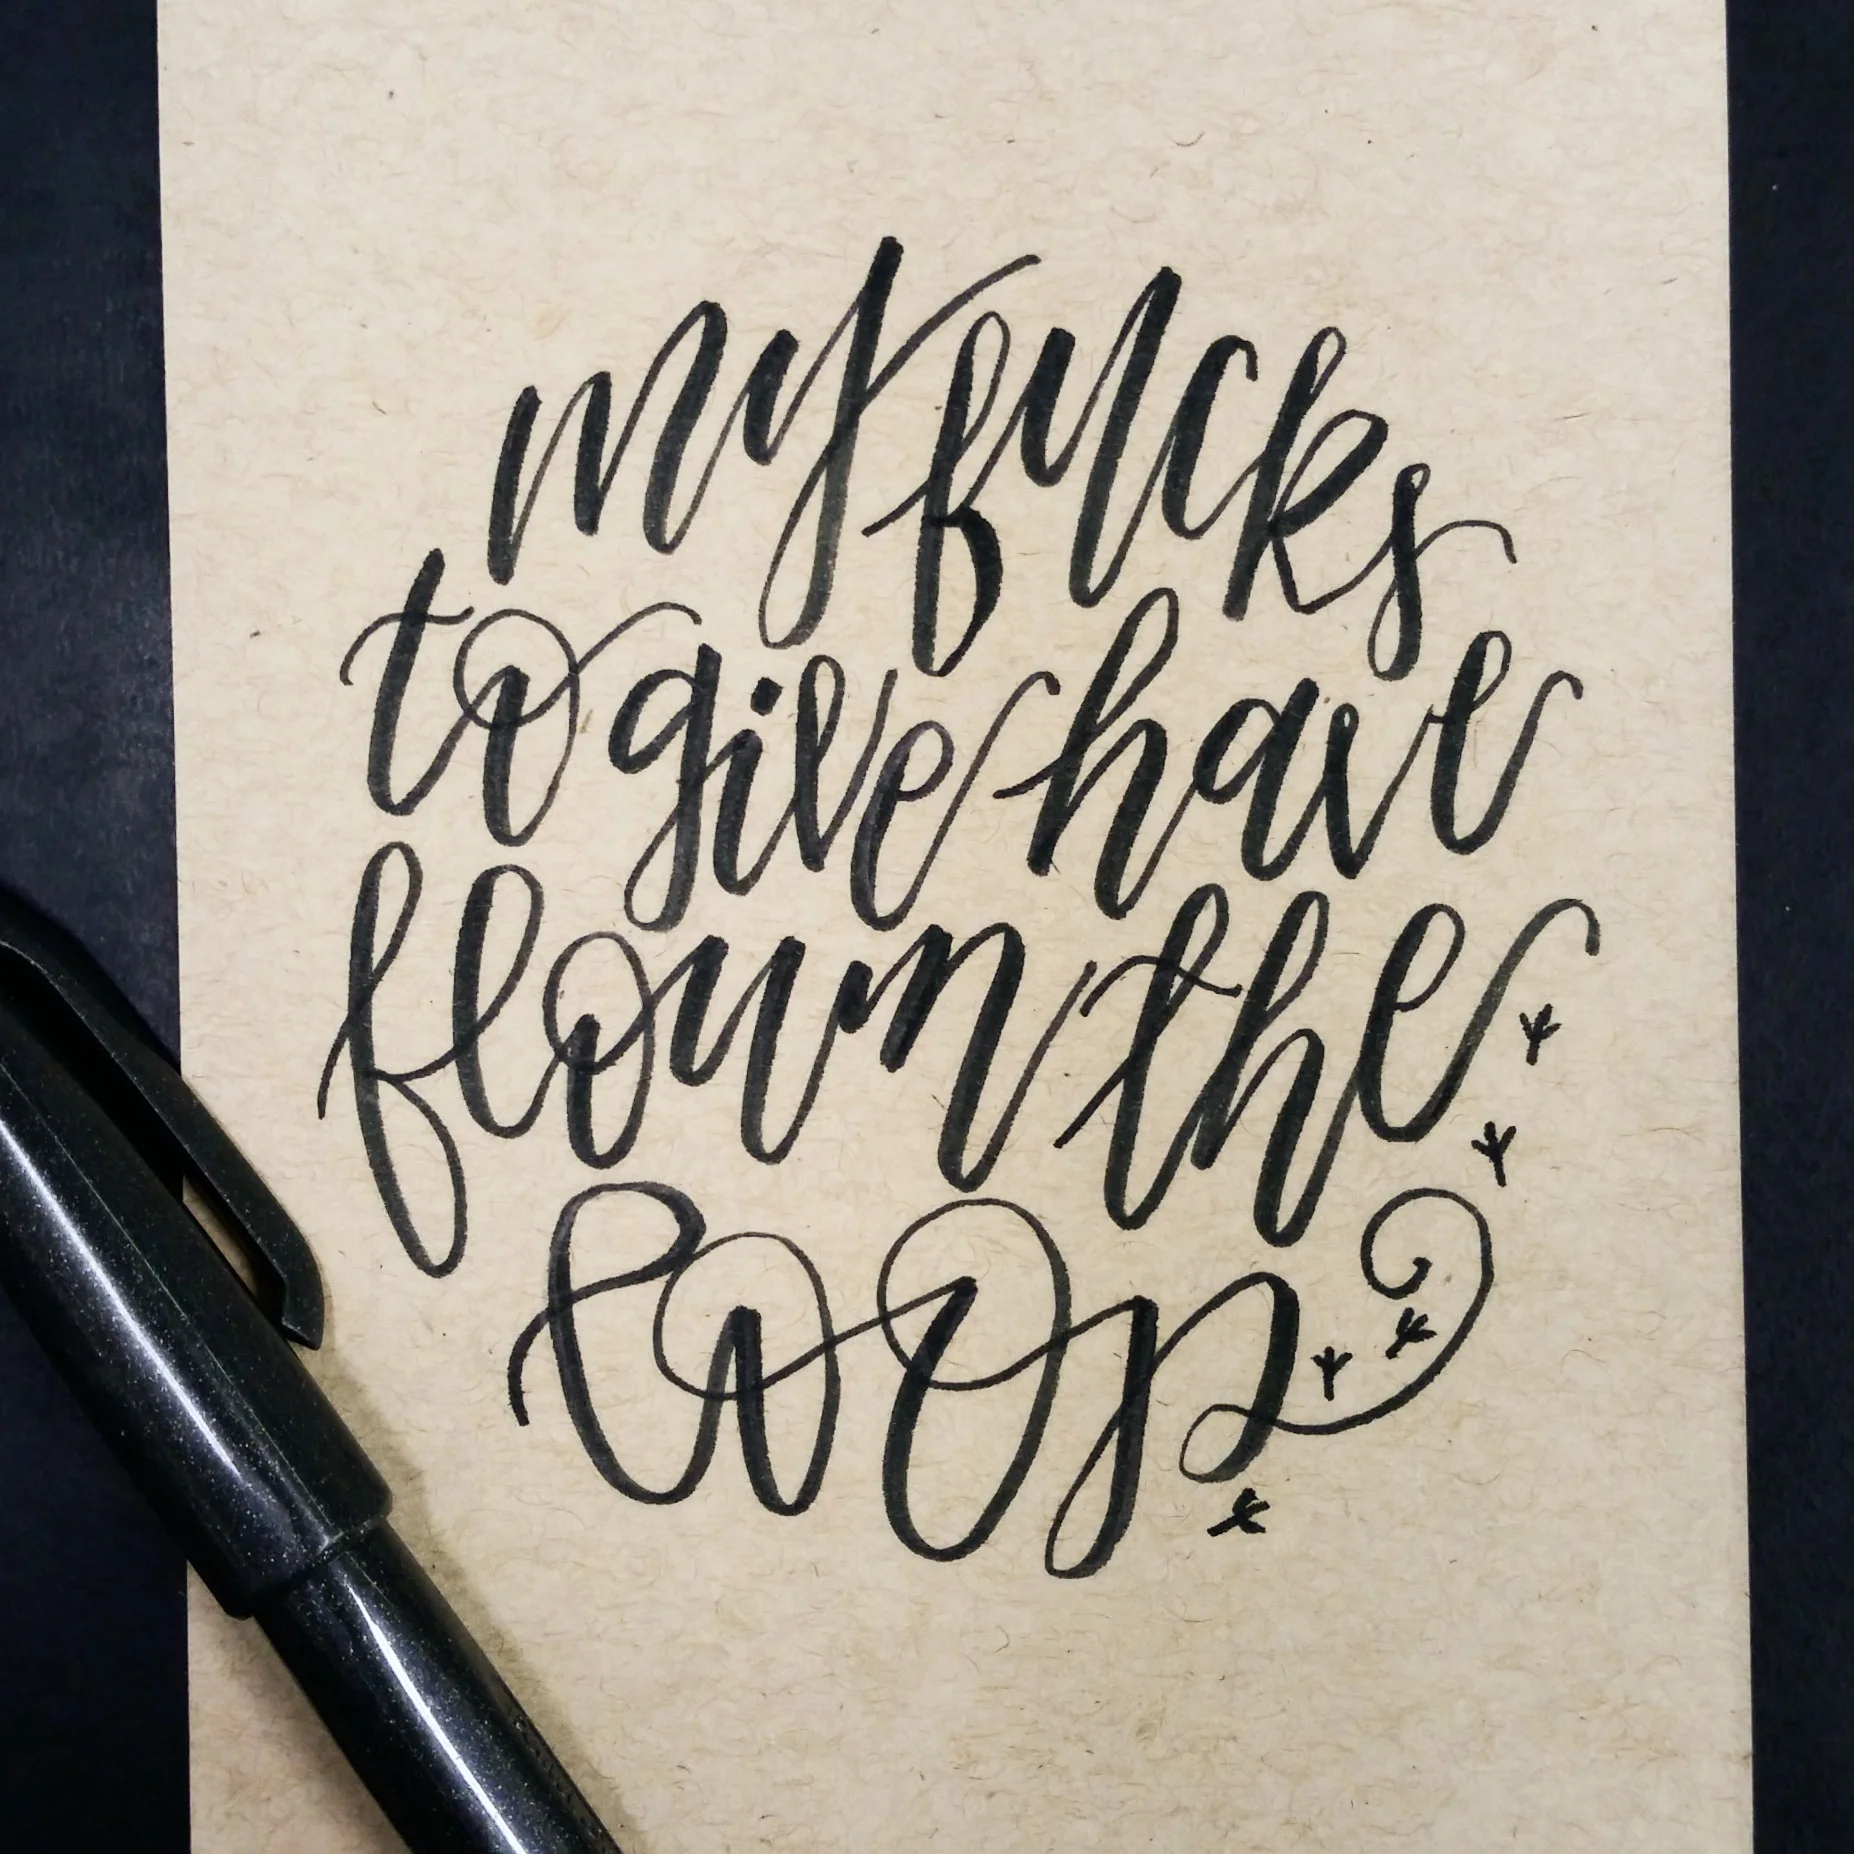 my fucks
to give have
flown the
coop